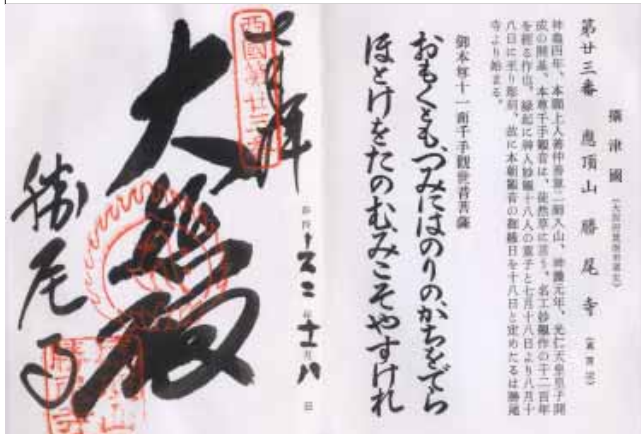 攝津國
第廿三番 應頂山 勝尾寺 (真言宗)
神龜四年、本願上人善仲善算二師入山、神護元年、光仁天皇皇子開
成の開基、本尊千手観音は、徒然草に言う。名工妙観作の千二百年
を経る作也。縁起に神人妙観十八人の童子と七月十八日より八月十
八日に至り彫刻、故に本朝観音の御縁日を十八日と定めたるは勝尾
寺より始まる。
御本尊十一面千手観世音菩薩
おもくとも、つみにはのりの、かちをでら
ほとけをたのむみこそやすけれ
月八日
拝
西國第廿三番
大
勝尾寺